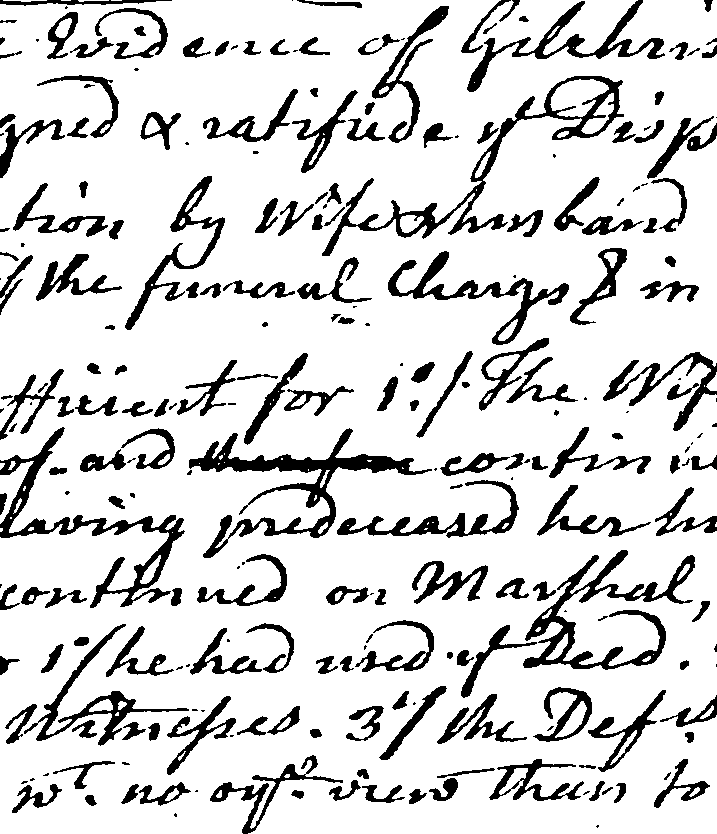 e Evidence off Gilchris
gned & ratifiide yt Disp
tion by Wife & husband
if the funeral Charges & in
fficient for 1o/. The Wif
of. and therefore continue
having predeceased her hu
continued on Marshal,
r 1o/ he had used yt Deed.
Witnesses. 3d/ the Defis
wt. no oyr. view than to